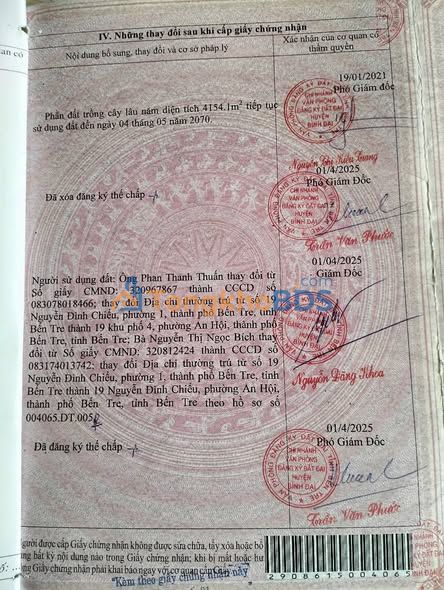 IV. Những thay đổi sau khi cấp giấy chứng nhận
Nội dung bổ sung, thay đổi và cơ sở pháp lý
Xác nhận của cơ quan có
thẩm quyền
19/01/2021
Phó Giám đốc
Phần đất trồng cây lâu năm diện tích 4154.1m² tiếp tục
sử dụng đất đến ngày 04 tháng 05 năm 2070.
CHI NHÁNH
VĂN PHÒNG
ĐĂNG KÝ ĐẤT ĐAI
HUYỆN
BÌNH ĐẠI
01/4/2025
Phó Giám Đốc
Đã xóa đăng ký thế chấp
CHI NHÁNH
VĂN PHÒNG
ĐĂNG KÝ ĐẤT ĐAI
HUYỆN
BÌNH ĐẠI
Trần Văn Phước
01/04/2025
Giám Đốc
Người sử dụng đất: Ông Phan Thanh Thuấn thay đổi từ
Số giấy CMND: 320967867 thành CCCD số
083078018466; thay đổi Địa chỉ thường trú từ số 19
Nguyễn Đình Chiểu, phường 1, thành phố Bến Tre, tỉnh
Bến Tre thành 19 khu phố 4, phường An Hội, thành phố
Bến Tre, tỉnh Bến Tre; Bà Nguyễn Thị Ngọc Bích thay
đổi từ Số giấy CMND: 320812424 thành CCCD số
083174013742; thay đổi Địa chỉ thường trú từ số 19
Nguyễn Đình Chiểu, phường 1, thành phố Bến Tre, tỉnh
Bến Tre thành 19 Nguyễn Đình Chiểu, phường An Hội,
thành phố Bến Tre, tỉnh Bến Tre theo hồ sơ số
004065.DT.005
Nguyễn Đăng Khoa
01/4/2025
Phó Giám Đốc
Đã đăng ký thế chấp
CHI NHÁNH
VĂN PHÒNG
ĐĂNG KÝ ĐẤT ĐAI
HUYỆN
BÌNH ĐẠI
Trần Văn Phước
được cấp Giấy chứng nhận không được sửa chữa, tẩy xóa hoặc bổ
bất kỳ nội dung nào trong Giấy chứng nhận; khi bị mất hoặc hư
Giấy chứng nhận phải khai báo ngay với cơ quan cấp Giấy
"Kèm theo giấy chứng nhận này"
2908615004065